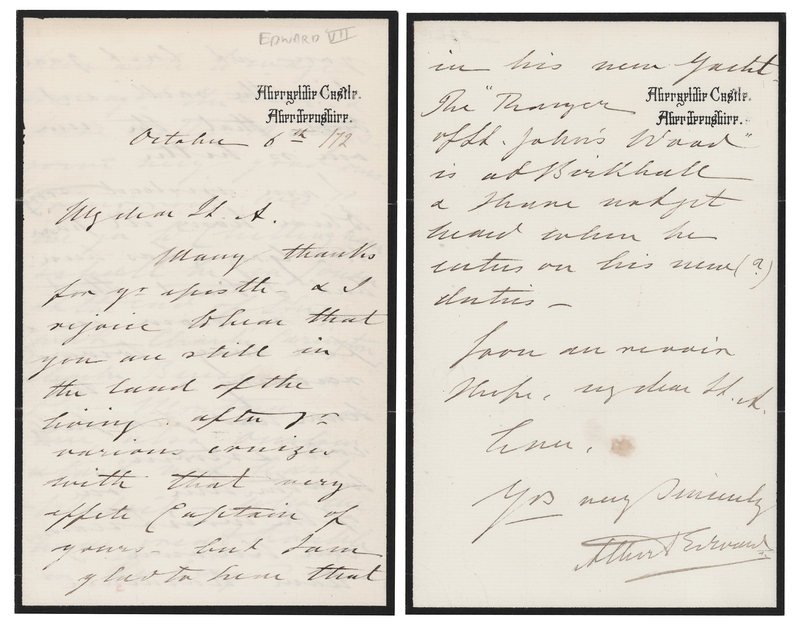 EDWARD VII
Abergeldie Castle.
Aberdeenshire.
October 6th /72
My dear St. A.
Many thanks
for yr. epistle & I
rejoice to hear that
you are still in
the land of the
living, after yr.
various cruizes
with that very
effete Captain of
yours - but I am
glad to hear that
in his new Yacht.
Abergeldie Castle.
Aberdeenshire.
The "Ranger
of St. John's Wood"
is at Birkhall
& I have not yet
heard when he
enters on his new (?)
duties -
Soon au revoir
I hope, my dear St. A.
Yrs very Sincerely
Albert Edward